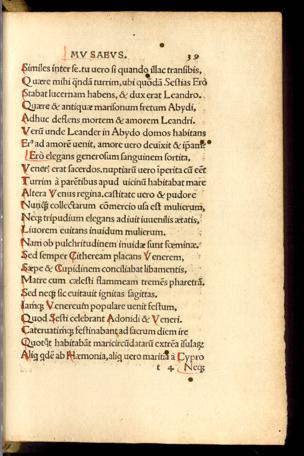 MVSAEVS. 39
Similes inter se. tu uero si quando illac transibis,
Quære mihi q̃ndã turrim, ubi quõdã Sestias Erò
Stabat lucernam habens, & dux erat Leandro.
Quære & antiquæ marisonum fretum Abydi,
Adhuc deflens mortem & amorem Leandri.
Verũ unde Leander in Abydo domos habitans
Erˢ ad amorẽ uenit, amore uero deuixit & ip̃am?
Erò elegans generosum sanguinem sortita,
Veneris erat sacerdos. nuptiarũ uero iperita cũ eẽt
Turrim à parẽtibus apud uicinũ habitabat mare
Altera Venus regina. castitate uero & pudore
Nunq̃ collectarum cõmercio usa est mulierum,
Neq; tripudium elegans adiuit iuuenilis ætatis,
Liuorem euitans inuidum mulierum.
Nam ob pulchritudinem inuidæ sunt fœminæ.
Sed semper Citheream placans Venerem,
Sæpe & Cupidinem conciliabat libamentis,
Matre cum cælesti flammeam tremẽs pharetrã.
Sed neq; sic euitauit ignitas sagittas.
Iamq; Venereum populare uenit festum,
Quod Sesti celebrant Adonidi & Veneri.
Cateruatimq; festinabant ad sacrum diem ire
Quotq̃t habitabãt maricircũdatarũ extrẽa isulaꝝ
Aliq; qdẽ ab Hæmonia, aliq; uero marita à Cypro
t 4 Neq;